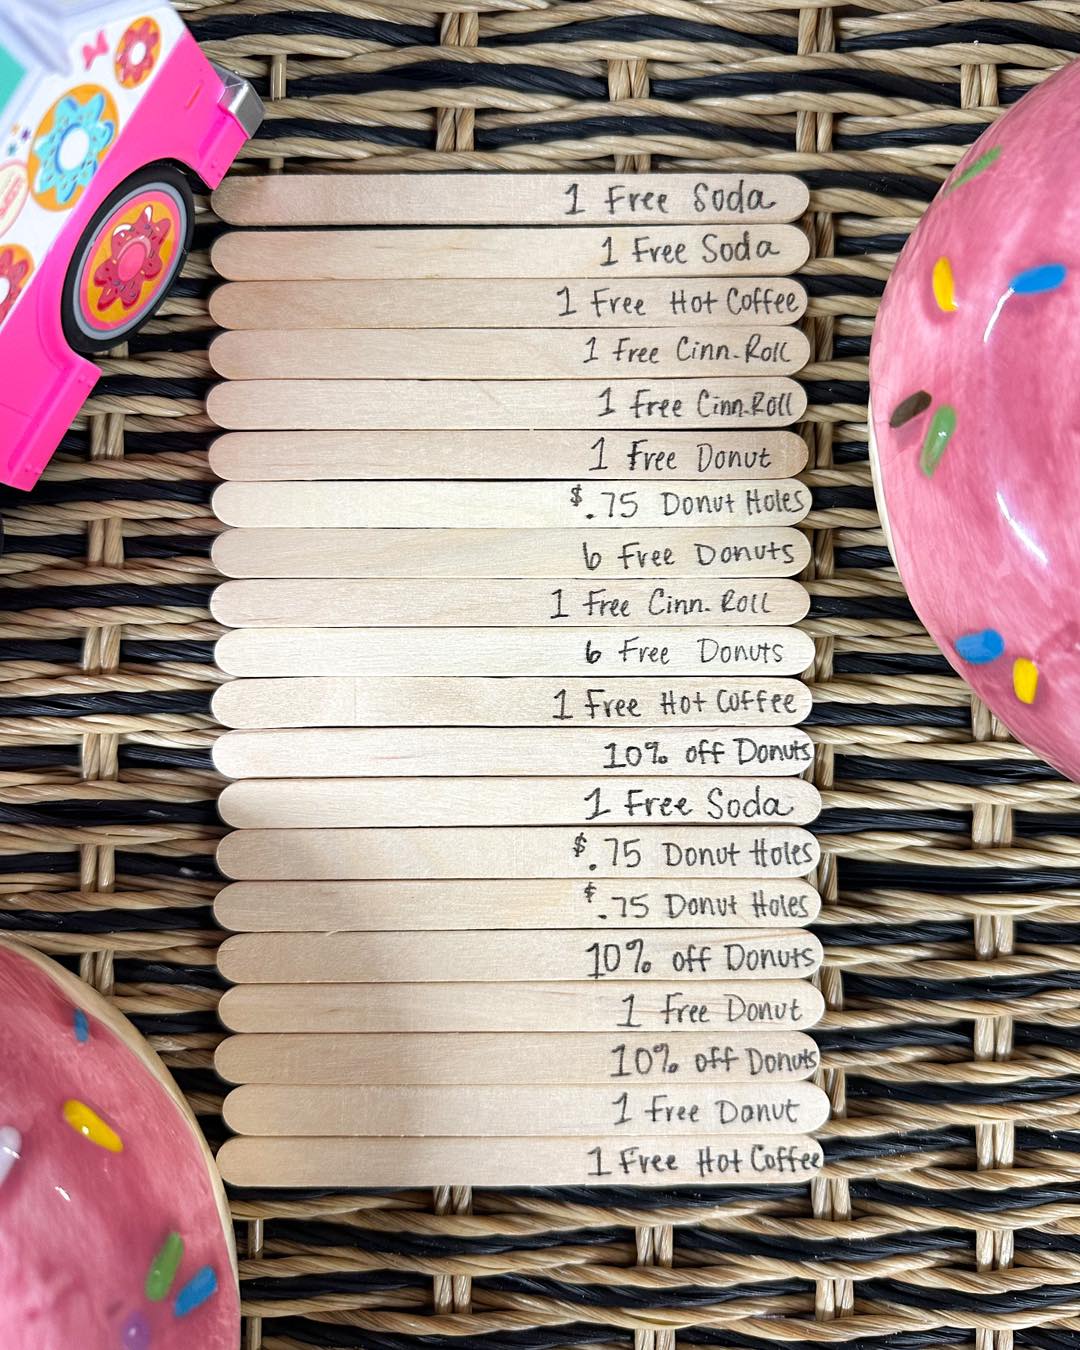 1 Free Soda
1 Free Soda
1 Free Hot Coffee
1 Free Cinn. Roll
1 Free Cinn. Roll
1 Free Donut
$.75 Donut Holes
6 Free Donuts
1 Free Cinn. Roll
6 Free Donuts
1 Free Hot Coffee
10% off Donuts
1 Free Soda
$.75 Donut Holes
$.75 Donut Holes
10% off Donuts
1 Free Donut
10% off Donuts
1 Free Donut
1 Free Hot Coffee